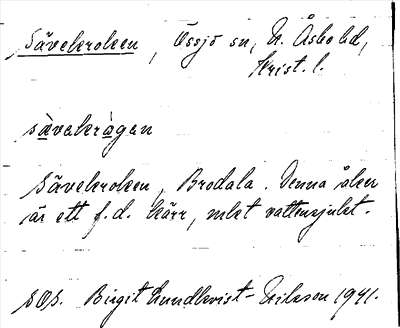 Sävekroken, Össjö sn, N. Åsbo hd,
Krist. l.
sävekrågen
Sävekroken, Brodala. Denna åker
är ett f.d. kärr, mkt vattensjukt.
Birgit Lundkvist-Nilsson 1941.